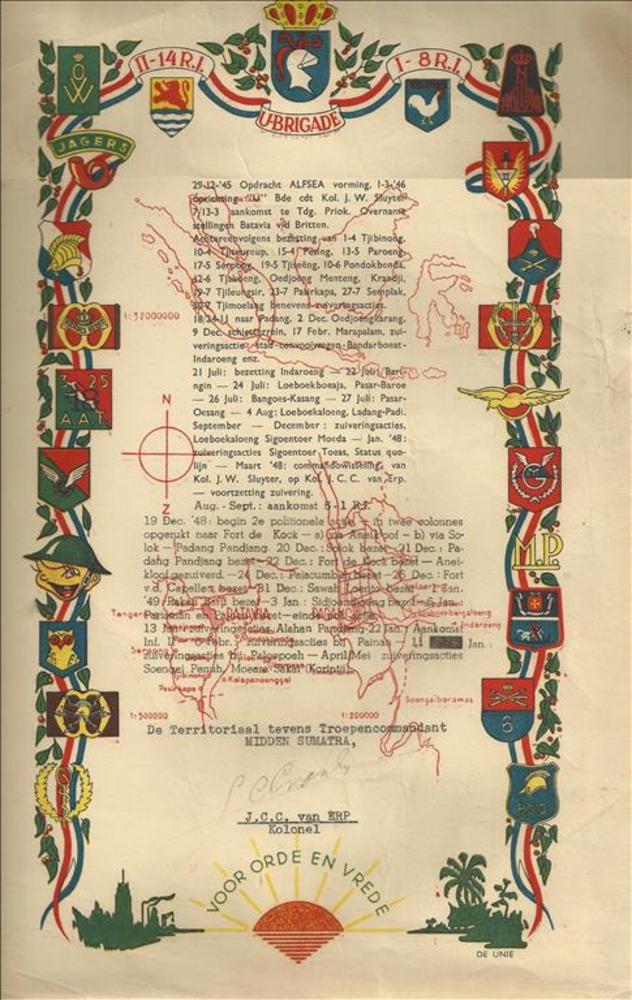 II-14 R.I.
I-8 R.I.
U-BRIGADE
JAGERS
29-12-'45 Opdracht ALFSEA vorming, 1-3-'46
oprichting "U" Bde cdt Kol. J. W. Sluyter
7/13-3 aankomst te Tdg. Priok. Overname
stellingen Batavia v/d Britten.
Achtereenvolgens bezetting van 1-4 Tjibinong,
10-4 Tjiteureup, 15-4 Pesing, 13-5 Paroeng,
17-5 Serpong, 19-5 Tjiseëng, 10-6 Pondokbenda,
Tjakoeng, Oedjoeng Menteng, Krandji,
Tjileungsir, 23-7 Pasirkapa, 27-7 Semplak,
Tjimoelang benevens zuiveringsacties.
18/24-11 naar Padang, 2 Dec. Oedjoengkarang,
9 Dec. schietterrein, 17 Febr. Marapalam, zui-
veringsactie stad-convooiwegen-Bandarboeat-
Indaroeng enz.
21 Juli: bezetting Indaroeng — 22 Juli: Bari-
ngin — 24 Juli: Loeboekboeaja, Pasar-Baroe
— 26 Juli: Bangoes-Kasang — 27 Juli: Pasar-
Oesang — 4 Aug: Loeboekaloeng, Ladang-Padi.
September — December: zuiveringsacties,
Loeboekaloeng Sigoentoer Moeda — Jan. '48:
zuiveringsacties Sigoentoer Toeas, Status quo-
lijn — Maart '48: commandowisseling van
Kol. J. W. Sluyter, op Kol. J. C. C. van Erp.
— voortzetting zuivering.
Aug. - Sept.: aankomst 5-1 R.J.
19 Dec. '48: begin 2e politionele actie — in twee colonnes
opgerukt naar Fort de Kock — a) via Aneikloof — b) via So-
lok — Padang Pandjang. 20 Dec.: Solok bezet — 21 Dec.: Pa-
dang Pandjang bezet — 22 Dec.: Fort de Kock bezet — Anei-
kloof gezuiverd. — 24 Dec.: Pajacumbah bezet — 26 Dec.: Fort
v.d. Capellen bezet — 31 Dec.: Sawah Loento bezet — Jan.
'49: bezet — 3 Jan.: Sidjoendjoeng bezet — 6 Jan.
Pariaman en bezet — einde pol. actie.
13 Jan.: zuiveringsacties Alahan Pandjang — 22 Jan.: Aankomst
Inf. Febr.: zuiveringsacties bij Painan — 11 Jan.:
zuiveringsacties bij Paloepoeh — April/Mei zuiveringsacties
Soengei Penuh, Moeara Sakai (Korintji).
1:32000000
N
Z
3 25
A.A.T.
M.P.
6
BATAVIA
PADANG
Indaroeng
Kalapanoenggal
Pasirkapa
Soengaibaramas
1:500000
1:200000
De Territoriaal tevens Troepencommandant
MIDDEN SUMATRA,
J.C.C. van ERP
Kolonel
VOOR ORDE EN VREDE
DE UNIE